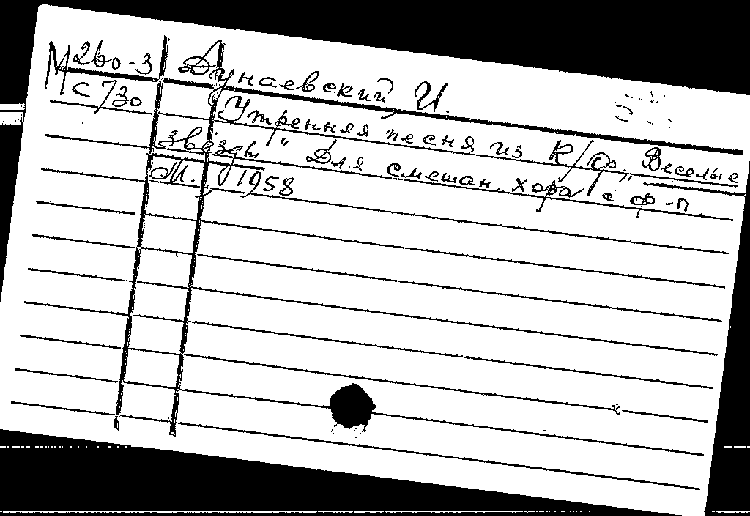 М260-3 Дунаевский, И.
С730 Утренняя песня из к/ф „Веселые
звезды". Для смешан. хора с ф-п.
М., 1958